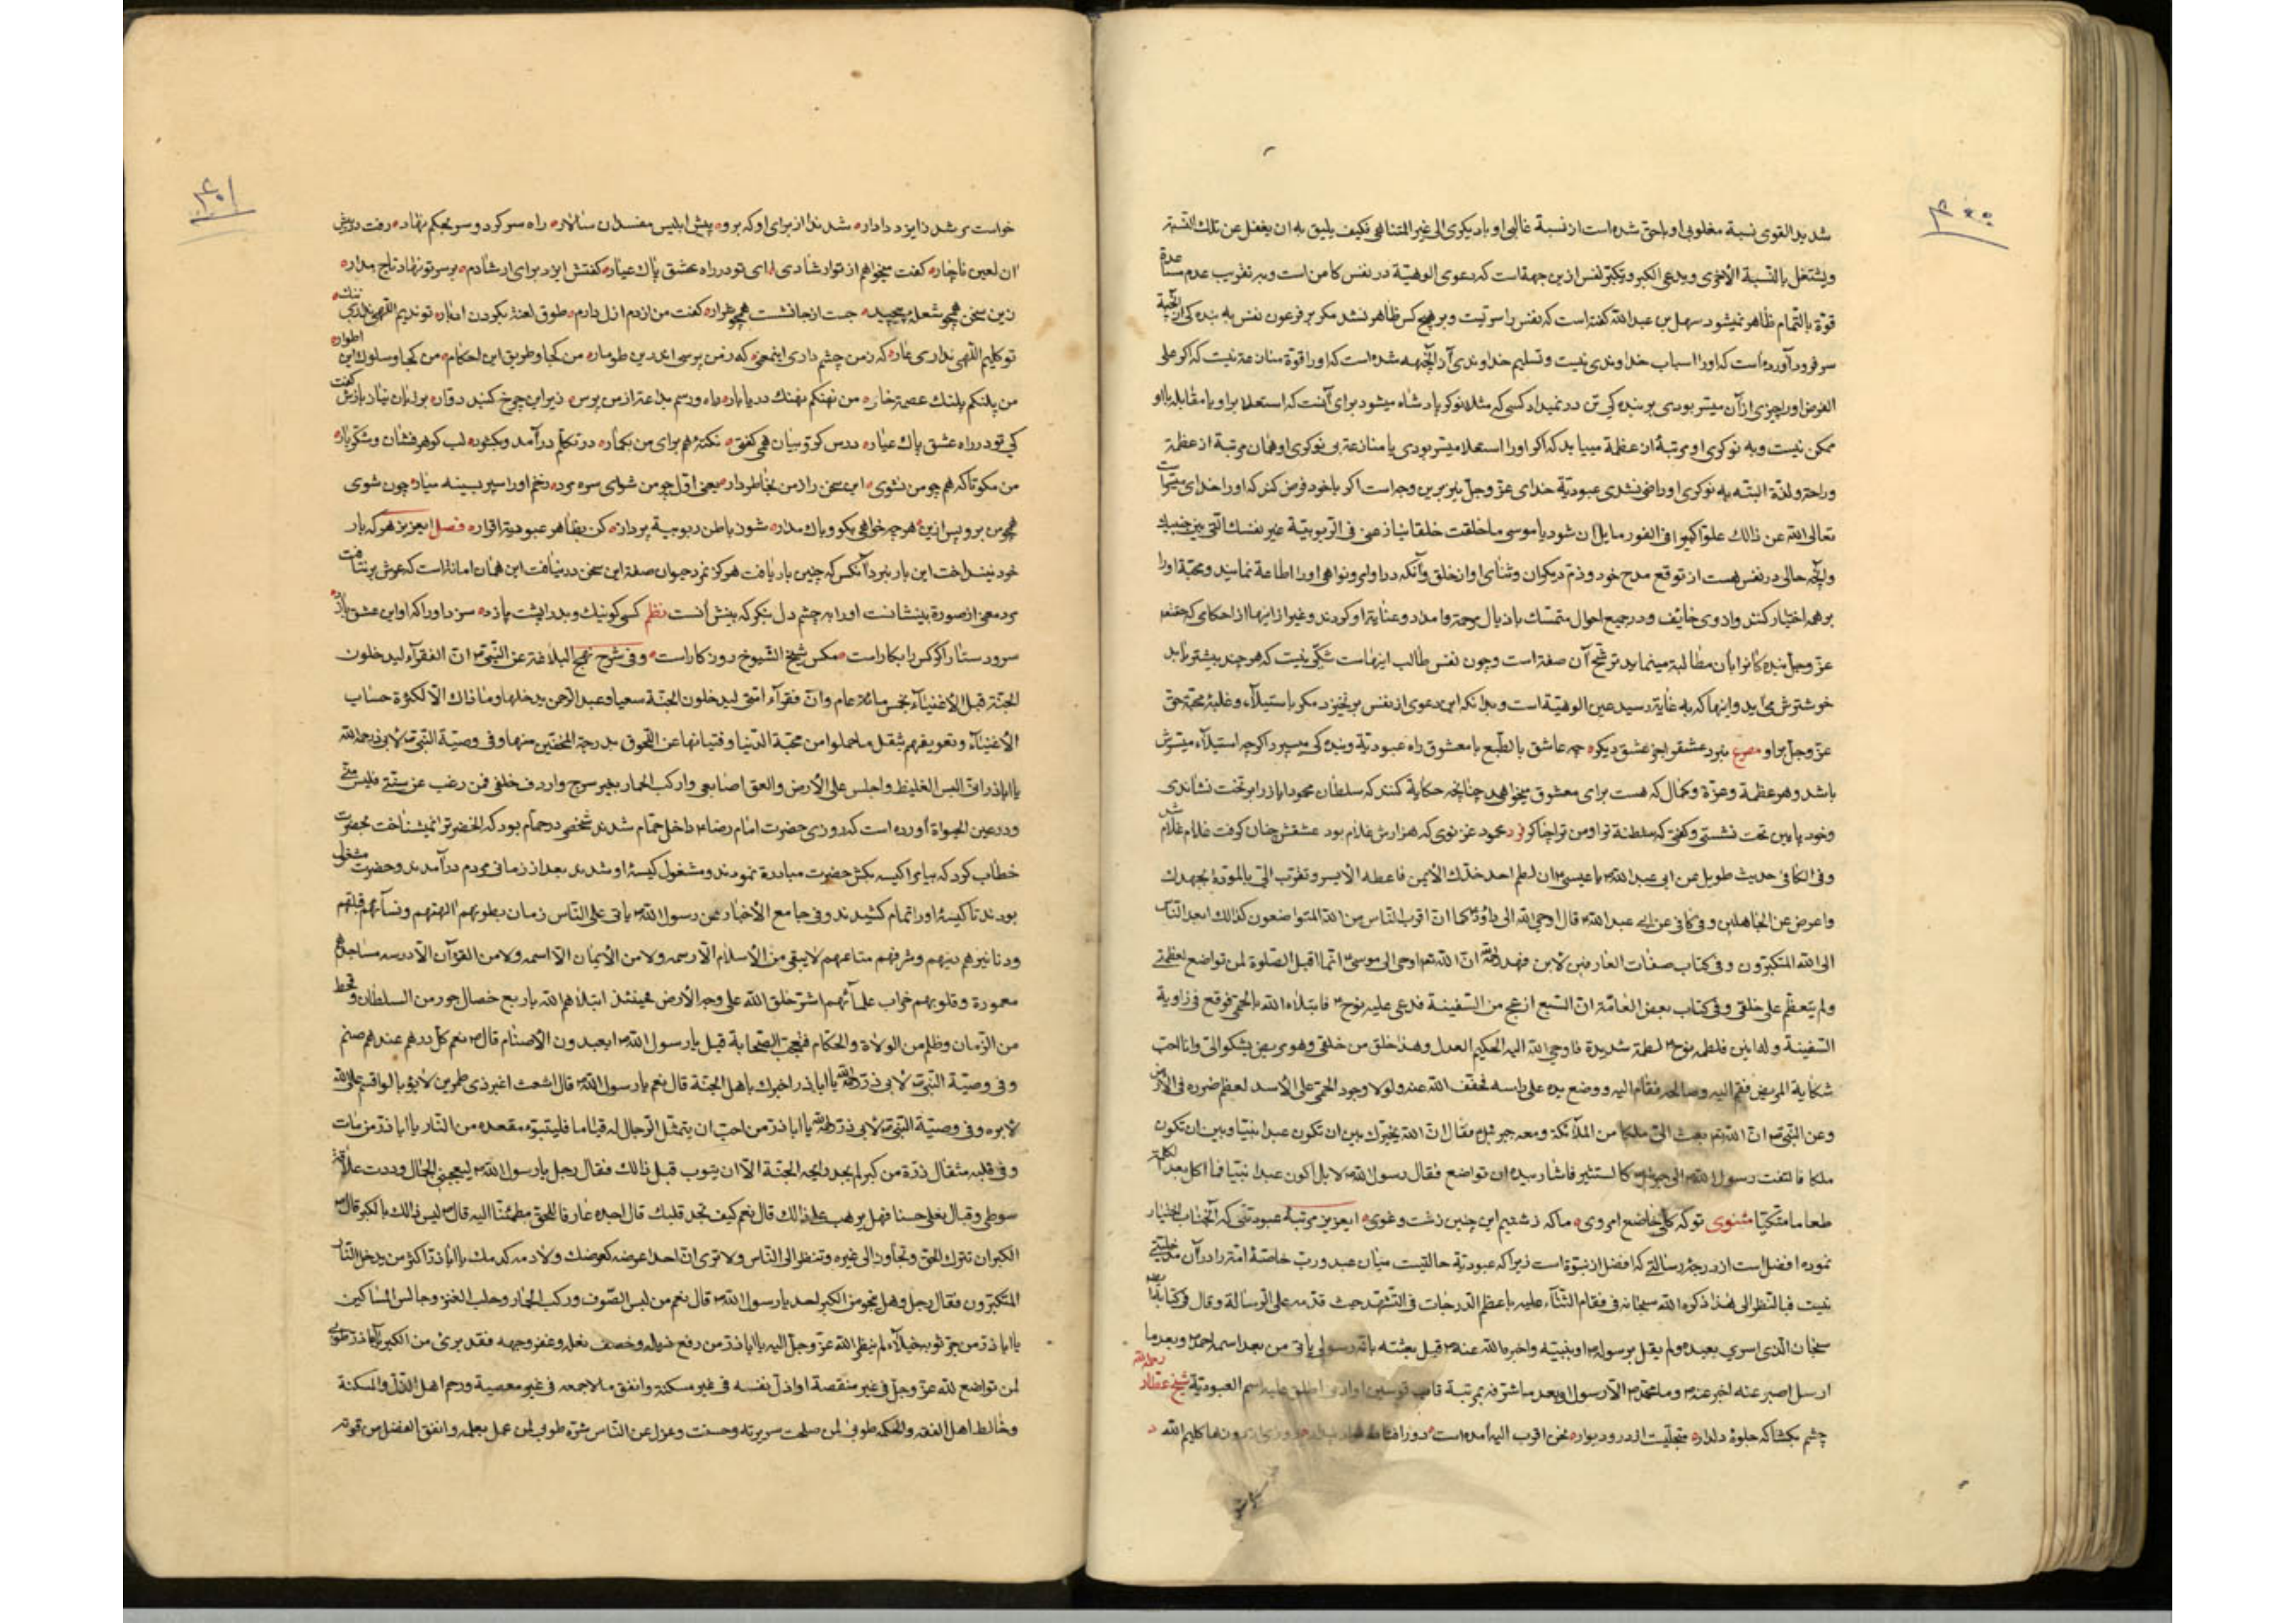 ۴۰۰
شدید القوی نسبة مغلوبی او باحق شده است از نسبة غالبی او با دیگری الی غیر المتناهی فکیف یلیق به ان یغفل عن تلک النسبة
ویشتغل بالنسبة الأخری ویدعی الکبر وتکبر نفس ازین جهة است که دعوی الوهیّة در نفس کامن است وبه تقریب عدم مساعدة
قوّة بالتمام ظاهر نمیشود سهل بن عبد الله گفته است که نفس را سرّیست وبر هیچ کس ظاهر نشد مکر بر فرعون نفس به بنده کی از آنجهة
سر فرود آورده است که او را اسباب خداوندی نیست وتسلیم خداوندی از آنجهه شده است که او را قوة منازعة نیست که اکر علی
الفرض او را چیزی از آن میسّر بودی بر بنده کی تن در نمیداد کسی که مثلا نوکر پادشاه میشود برای آنست که استعلا بر او یا مقابله با او
ممکن نیست وبه نوکری او مرتبهٔ از عظمة مییابد که اکر او را استعلا میسّر بودی یا منازعة بی نوکری او همان مرتبة از عظمة
وراحة ولذّة البته به نوکری او راضی نشدی عبودیّة خدای عزّ وجلّ نیز برین وجه است اکر با خود فرض کند که او را خدائی میسّر است
تعالی الله عن ذالک علوّا کبیرا فی الفور مایل آن شود یا موسی ما خلقت خلقا ینازعنی فی الربوبیّة غیر نفسک الّتی بین جنبیک
وآنچه حالی در نفس هست از توقع مدح خود وذمّ دیکران وثنای او از خلق وآنکه در اوامر ونواهی او را اطاعة نمایند ومحبّة او را
بر همه اختیار کنند واز وی خائف ودر جمیع احوال متمسّک باذیال رحمة وامداد وعنایة او کردند وغیر از اینها از احکامی که حقّ
عزّ وجلّ بنده کانرا بآن مطالبة مینماید ترشّح آن صفة است وچون نفس طالب اینهاست شکّی نیست که هر چند بیشتر یابد
خوشترش می‌آید واینها که به غایة رسید عین الوهیّة است وبدانکه این دعوی از نفس بر نخیزد مکر باستیلاء وغلبهٔ محبّة حقّ
عزّ وجلّ بر او مصرع نبرد عشق را جز عشق دیکر چه عاشق بالطّبع با معشوق راه عبودیّة وبنده کی میسپرد اکر چه استیلاء میسّرش
باشد وهر عظمة وعزّة وکمال که هست برای معشوق میخواهد چنانچه حکایة کنند که سلطان محمود ایاز را بر تخت نشاندی
وخود پایین تخت نشستی وکفتی که سلطنة تو او من تو را چاکر فرد محمود غزنوی که هزارش غلام بود عشقش چنان کرفت غلام غلام شد
وفی الکافی حدیث طویل عن ابی عبد الله یا عیسی ان لطم احد خدّک الأیمن فاعطه الأیسر وتقرّب الیّ بالمودّة بجهدک
واعرض عن الجاهلین وفی کافی عن ابی عبد الله قال اوحی الله الی داود کما انّ اقرب النّاس من الله المتواضعون کذالک ابعد النّاس
الی الله المتکبّرون وفی کتاب صفات العارفین لابن فهد انّ الله اوحی الی موسی انّما اقبل الصّلوة لمن تواضع لعظمتی
ولم یتعظّم علی خلقی وفی کتاب بعض العامّة انّ السّبع ازعج من السّفینة فدعی علیه نوح فابتلاه الله بالحمّی فوقع فی زاویة
السّفینة فلطمه نوح لطمة شدیدة فاوحی الله الیه الحکیم العدل وهذا خلق من خلقی وهو مریض یشکو الیّ وانا احبّ
شکایة المریض فقم الیه وصالحه فقام الیه ووضع یده علی راسه فخفّف الله عنه ولولا وجود الحمّی علی الأسد لعظم ضرره فی الأرض
وعن النّبی انّ الله بعث الیّ ملکا من الملآئکة ومعه جبرئیل فقال انّ الله یخیّرک بین ان تکون عبدا نبیّا وبین ان تکون
ملکا فالتفت رسول الله الی جبرئیل کالمستشیر فاشار بیده ان تواضع فقال رسول الله لا بل اکون عبدا نبیّا فما اکل بعد
طعاما متّکیا مثنوی ما که زشتیم این چنین زشت وغوی ایعزیز مرتبهٔ عبودیّتی که آنجناب اختیار
نموده افضل است از درجهٔ رسالتی که افضل از نبوّة است زیرا که عبودیّة حالتیست میان عبد ورب خاصّة امّة را در آن مدخلیتی
نیست فبالنّظر الی هذا ذکره الله سبحانه فی مقام الثّناء علیه باعظم الدّرجات فی التّشهّد حیث قدّمه علی الرسالة وقال فی کتابه
سبحان الّذی اسری بعبده ولم یقل برسوله او بنبیّه واخبر الله عنه قبل بعثته بانّه رسول یأتی من بعد اسمه احمد وبعد ما
ارسل اخبر عنه وما محمّد الّا رسول وبعد ما شرّفه بمرتبة قاب قوسین او ادنی اطلق علیه اسم العبودیّة شیخ عطّار رحمه الله
چشم بکشا که جلوهٔ دلدار متجلّیست از در ودیوار نحن اقرب الیه آمده است کلیم الله
۴۰۱
خواست مرشد ز ایزد دادار شد ندا از برای او که برو پیش ابلیس مفسدان سالار راه سر کرد و سر بحکم نهاد رفت در پیش
آن لعین ناچار کفت میخواهم از تو ارشادی ای تو در راه عشق پاک عیار کفتش ایزد برای ارشادم بر سر تو نهاد تاج مدار
زین سخن همچو شعله پیچید جست از جا نشست همچو شرار کفت من از دم ازل دارم طوق لعنة بکردن ادبار تو ندیم اللّهی نداری ننک
تو کلیم اللّهی نداری عار که ز من چشم داری اینمعنی که ز من پرسی اندرین طومار من کجا وطریق این احکام من کجا وسلوک این اطوار
من پلنکم پلنک عصمة خار من نهنکم نهنک دریا بار راه ورسم بدعة از من پرس زیر این چرخ کنبد دوّار بر زبان نیاز بازش کفت
کی تو در راه عشق پاک عیار درس کو تو بیان همی کفتی نکتهٔ هم برای من بکمار در تکلّم در آمد وبکشود لب کوهر فشان وشکّر بار
من مکو تا که هم چو من نشوی این سخن را ز من بخاطر دار یعنی اوّل چو من شوای سره مرد زخم او را سپر بسینه میار چون شوی
همچو من برو پس ازین هر چه خواهی بکو وباک مدار شو بباطن ربوبیة پرداز کن بظاهر عبودیة اقرار فصل ایعزیز هر که بار
خود نینداخت این بار نبرد آنکس که چنین بار یافت هرکز نمرد حیوان صفة این سخن در نیافت این همان امانة است که عرش بر نتافت
مرد معنی از صورة بینشانست او را به چشم دل بنکر که بینش آنست نظم کسی کو نیک وبد را پشت پا زد سزد او را که او این عشق بازد
سرود ستار اکر کس را بکار است مکس شیخ الشّیوخ روزکار است وفی شرح نهج البلاغة عن النّبی انّ الفقراء لیدخلون
الجنّة قبل الأغنیاء بخمس مائة عام وانّ فقراء امّتی لیدخلون الجنّة سعیا وعبد الرحمن یدخلها وما ذاک الّا لکثرة حساب
الأغنیاء وتعویقهم بثقل ما حملوا من محبّة الدّنیا وقنیاتها عن اللّحوق بدرجة المخفّین منها وفی وصیّة النّبی لابی ذر رحمه الله
یا اباذر انّی البس الغلیظ واجلس علی الأرض والعق اصابعی وارکب الحمار بغیر سرج واردف خلفی فمن رغب عن سنّتی فلیس منّی
ودر عین الحیواة آورده است که روزی حضرت امام رضا داخل حمّام شدند شخصی در حمّام بود که آنحضرترا نمیشناخت بحضرت
خطاب کرد که بیا مرا کیسه بکش حضرت مبادرة نمودند ومشغول کیسهٔ او شدند بعد از زمانی مردم در آمدند وحضرت مشغول
بودند تا کیسهٔ او را تمام کشیدند وفی جامع الأخبار عن رسول الله یأتی علی النّاس زمان بطونهم الهتهم ونسآئهم قبلتهم
ودنانیرهم دینهم وشرفهم متاعهم لا یبقی من الأسلام الّا رسمه ولا من الأیمان الّا اسمه ولا من القرآن الّا درسه مساجدهم
معمورة وقلوبهم خراب علمآئهم اشرّ خلق الله علی وجه الأرض فحینئذ ابتلاهم الله باربع خصال جور من السلطان وقحط
من الزّمان وظلم من الولاة والحکّام فتعجّب الصّحابة قیل یا رسول الله ایعبدون الأصنام قال نعم کلّ درهم عندهم صنم
وفی وصیّة النّبی لابی ذر یا اباذر اخبرک باهل الجنّة قال نعم یا رسول الله قال اشعث اغبر ذی طمرین لا یؤبه له لو اقسم علی الله
لابره وفی وصیّة النّبی لابی ذر یا اباذر من احبّ ان یتمثّل الرجال له قیاما فلیتبوّء مقعده من النّار یا اباذر من مات
وفی قلبه مثقال ذرّة من کبر لم یجد رایحة الجنّة الّا ان یتوب قبل ذالک فقال رجل یا رسول الله لیعجبنی الجمال وددت علاقة
سوطی وقبال نعلی حسنا فهل یرهب علیّ ذالک قال نعم کیف تجد قلبک قال اجده عارفا للحقّ مطمئنّا الیه قال لیس ذالک بالکبر قال
الکبر ان تترک الحقّ وتجاوز الی غیره وتنظر الی النّاس ولا تری انّ احدا عرضه کعرضک ولا دمه کدمک یا اباذر اکثر من یدخل النّار
المتکبّرون فقال رجل وهل ینجو من الکبر احد یا رسول الله قال نعم من لبس الصّوف ورکب الحمار وحلب العنز وجالس المساکین
یا اباذر من جرّ ثوبه خیلآء لم ینظر الله عزّ وجلّ الیه یا اباذر من رفع ذیله وخصف نعله وعفر وجهه فقد برئ من الکبر یا اباذر طوبی
لمن تواضع لله عزّ وجلّ فی غیر منقصة واذلّ نفسه فی غیر مسکنة وانفق مالا جمعه فی غیر معصیة ورحم اهل الذّلّ والمسکنة
وخالط اهل الفقه والحکمة طوبی لمن صلحت سریرته وحسنت وعزل عن النّاس شرّه طوبی لمن عمل بعلمه وانفق الفضل من قوته